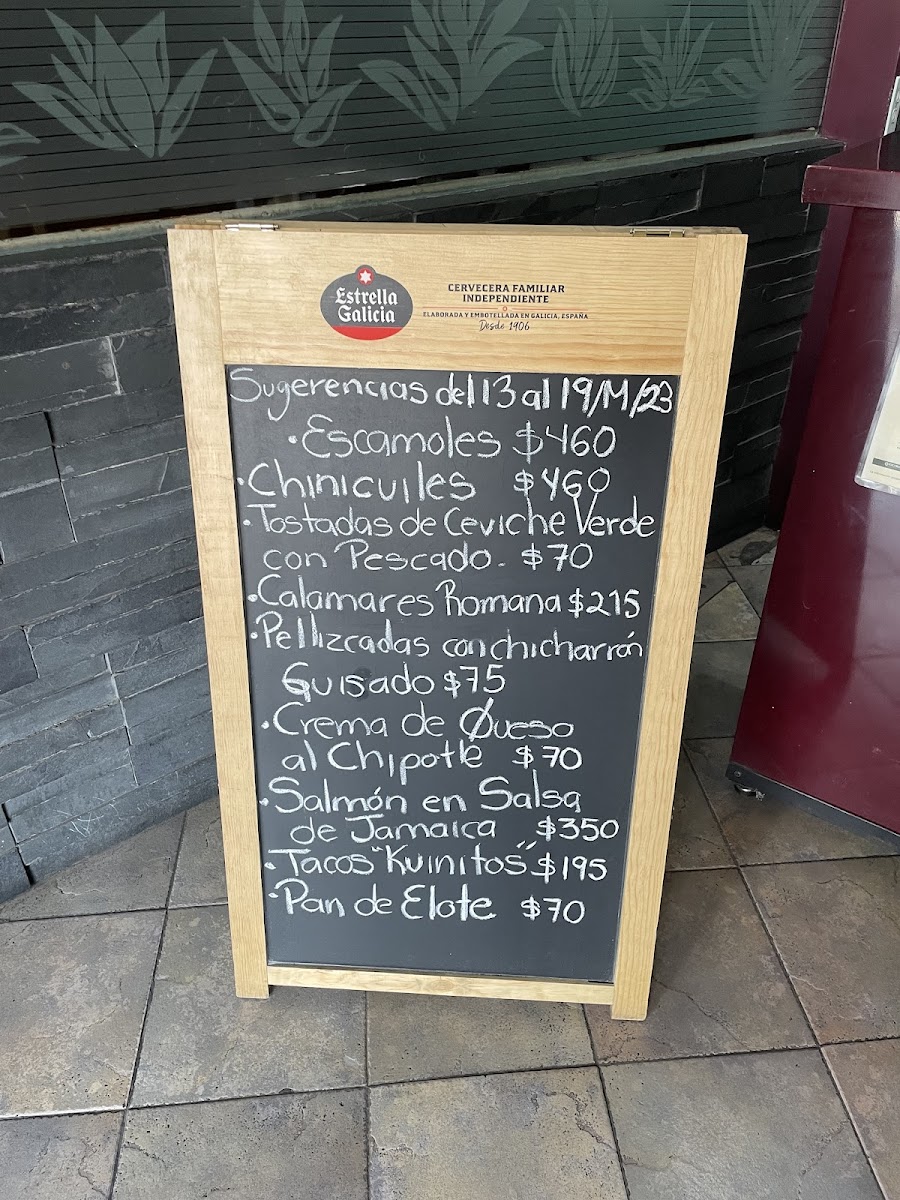 Estrella
Galicia
CERVECERA FAMILIAR
INDEPENDIENTE
ELABORADA Y EMBOTELLADA EN GALICIA, ESPAÑA
Desde 1906
Sugerencias del 13 al 19/M/23
• Escamoles $460
• Chinicuiles $460
• Tostadas de Ceviche Verde
con Pescado. $70
• Calamares Romana $215
• Pellizcadas con chicharrón
Guisado $75
• Crema de Queso
al Chipotle $70
• Salmón en Salsa
de Jamaica $350
• Tacos "Kuinitos" $195
• Pan de Elote $70